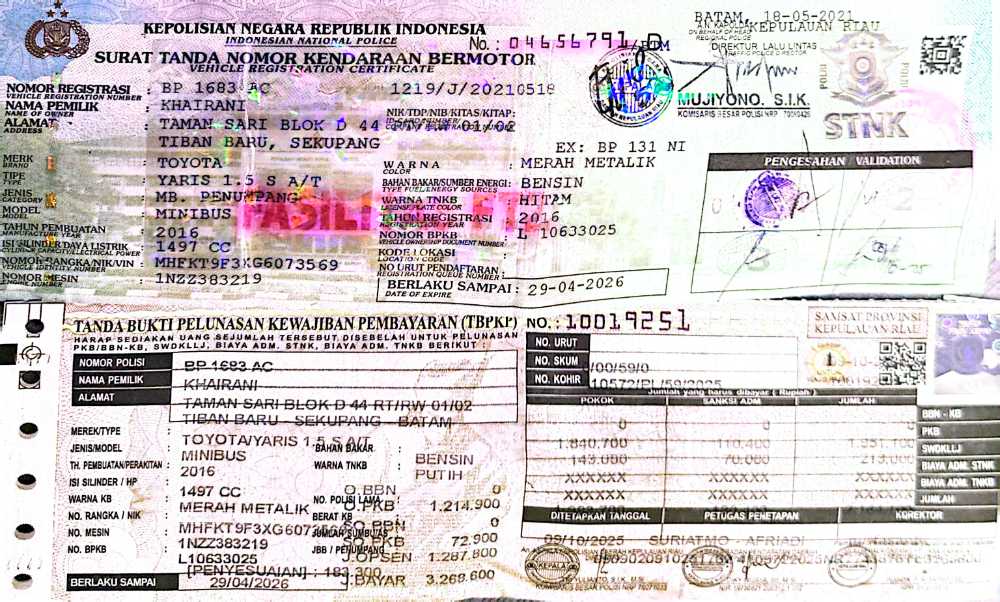 KEPOLISIAN NEGARA REPUBLIK INDONESIA
INDONESIAN NATIONAL POLICE
No.: 04656791
SURAT TANDA NOMOR KENDARAAN BERMOTOR
VEHICLE REGISTRATION CERTIFICATE
BATAM, 18-05-2021
KEPULAUAN RIAU
DIREKTUR LALU LINTAS
MUJIYONO. S.I.K.
STNK
NOMOR REGISTRASI : BP 1683 AC 1219/J/20210518
VEHICLE REGISTRATION NUMBER
NAMA PEMILIK : KHAIRANI
NAME OF OWNER
NIK/TDP/NIB/KITAS/KITAP:
ALAMAT : TAMAN SARI BLOK D 44
ADDRESS
TIBAN BARU, SEKUPANG
EX: BP 131 NI
MERK : TOYOTA
BRAND
TIPE : YARIS 1.5 S A/T
TYPE
JENIS : MB. PENUMPANG
CATEGORY
MODEL : MINIBUS
MODEL
TAHUN PEMBUATAN : 2016
MANUFACTURE YEAR
ISI SILINDER/DAYA LISTRIK : 1497 CC
NOMOR RANGKA/NIK/VIN : MHFKT9F3XG6073569
VEHICLE IDENTITY NUMBER
NOMOR MESIN : 1NZZ383219
ENGINE NUMBER
WARNA : MERAH METALIK
COLOR
BAHAN BAKAR/SUMBER ENERGI : BENSIN
TYPE FUEL/ENERGY SOURCES
WARNA TNKB : HITAM
LICENSE PLATE COLOR
TAHUN REGISTRASI : 2016
REGISTRATION YEAR
NOMOR BPKB : L 10633025
VEHICLE OWNERSHIP DOCUMENT NUMBER
KODE LOKASI :
LOCATION CODE
NO URUT PENDAFTARAN :
REGISTRATION QUEUE NUMBER
BERLAKU SAMPAI : 29-04-2026
DATE OF EXPIRE
PENGESAHAN VALIDATION
TANDA BUKTI PELUNASAN KEWAJIBAN PEMBAYARAN (TBPKP) NO.: 10019251
HARAP SEDIAKAN UANG SEJUMLAH TERSEBUT DISEBELAH UNTUK PELUNASAN
PKB/BBN-KB, SWDKLLJ, BIAYA ADM. STNK, BIAYA ADM. TNKB BERIKUT :
SAMSAT PROVINSI
KEPULAUAN RIAU
NOMOR POLISI BP 1683 AC
NAMA PEMILIK KHAIRANI
ALAMAT TAMAN SARI BLOK D 44 RT/RW 01/02
TIBAN BARU - SEKUPANG - BATAM
MEREK/TYPE : TOYOTA/YARIS 1.5 S A/T
JENIS/MODEL : MINIBUS
TH. PEMBUATAN/PERAKITAN : 2016
ISI SILINDER / HP : 1497 CC
WARNA KB : MERAH METALIK
NO. RANGKA / NIK
NO. MESIN : 1NZZ383219
NO. BPKB : L10633025
[PENYESUAIAN] : 183.300
BERLAKU SAMPAI : 29/04/2026
BAHAN BAKAR : BENSIN
WARNA TNKB : PUTIH
NO. POLISI LAMA
BERAT KB
JBB / PENUMPANG
O.BBN 0
O.PKB 1.214.900
SO.BBN 0
SO.PKB 72.900
OPSEN 1.287.800
J.BAYAR 3.268.600
NO. URUT
NO. SKUM /00/59/0
NO. KOHIR
Jumlah yang harus dibayar ( Rupiah )
POKOK SANKSI ADM JUMLAH
0 0 0 BBN - KB
1.840.700 110.400 PKB
143.000 70.000 213.000 SWDKLLJ
XXXXXX XXXXXX XXXXXX BIAYA ADM. STNK
XXXXXX XXXXXX XXXXXX BIAYA ADM. TNKB
JUMLAH
DITETAPKAN TANGGAL PETUGAS PENETAPAN KOREKTOR
09/10/2025 SURIATMO - AFRIADI